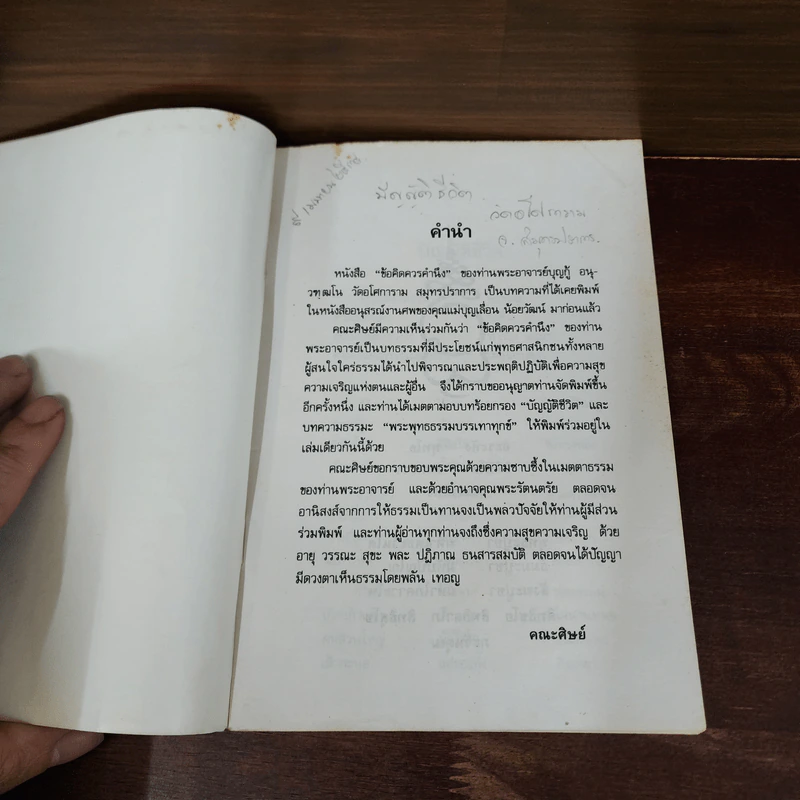 บัญญัติชีวิต
วัดอโศการาม
จ. สมุทรปราการ
คำนำ
หนังสือ “ข้อคิดควรคำนึง” ของท่านพระอาจารย์บุญกู้ อนุ-
วฑฺฒโน วัดอโศการาม สมุทรปราการ เป็นบทความที่ได้เคยพิมพ์
ในหนังสืออนุสรณ์งานศพของคุณแม่บุญเลื่อน น้อยวัฒน์ มาก่อนแล้ว
คณะศิษย์มีความเห็นร่วมกันว่า “ข้อคิดควรคำนึง” ของท่าน
พระอาจารย์เป็นบทธรรมที่มีประโยชน์แก่พุทธศาสนิกชนทั้งหลาย
ผู้สนใจใคร่ธรรมได้นำไปพิจารณาและประพฤติปฏิบัติเพื่อความสุข
ความเจริญแห่งตนและผู้อื่น จึงได้กราบขออนุญาตท่านจัดพิมพ์ขึ้น
อีกครั้งหนึ่ง และท่านได้เมตตามอบบทร้อยกรอง “บัญญัติชีวิต” และ
บทความธรรมะ “พระพุทธธรรมบรรเทาทุกข์” ให้พิมพ์ร่วมอยู่ใน
เล่มเดียวกันนี้ด้วย
คณะศิษย์ขอกราบขอบพระคุณด้วยความซาบซึ้งในเมตตาธรรม
ของท่านพระอาจารย์ และด้วยอำนาจคุณพระรัตนตรัย ตลอดจน
อานิสงส์จากการให้ธรรมเป็นทานจงเป็นพลวปัจจัยให้ท่านผู้มีส่วน
ร่วมพิมพ์ และท่านผู้อ่านทุกท่านจงถึงซึ่งความสุขความเจริญ ด้วย
อายุ วรรณะ สุขะ พละ ปฏิภาณ ธนสารสมบัติ ตลอดจนได้ปัญญา
มีดวงตาเห็นธรรมโดยพลัน เทอญ
คณะศิษย์